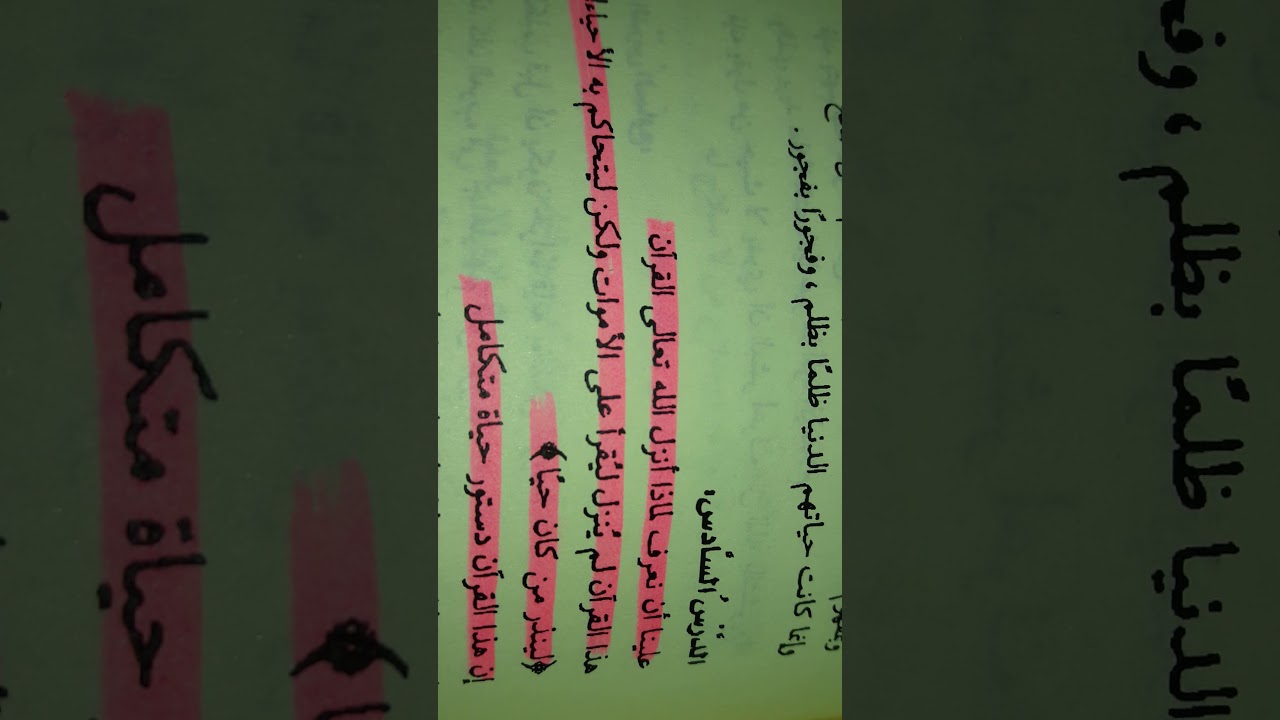 وإنما كانت حياتهم الدنيا ظلمًا بظلم، وفجورًا بفجور.
الدَّرْسُ السَّادِسُ:
علينا أن نعرف لماذا أنزل الله تعالى القرآن
هذا القرآن لم يُنزل ليُقرأ على الأموات ولكن ليتحاكم به الأحياء
﴿لينذر من كان حيًّا﴾
إن هذا القرآن دستور حياة متكامل